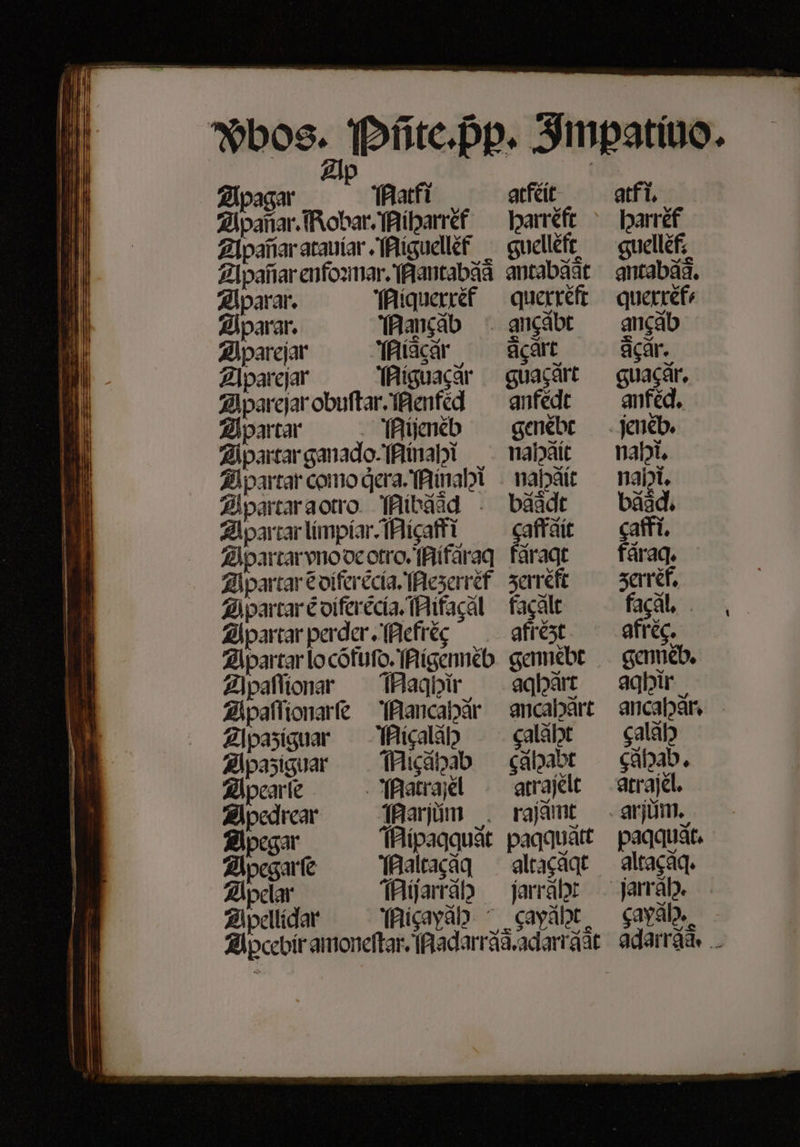 Ꝟbos. Pñte.p̃p. Impatiuo.
Ap
Apagar Natfí atféit atfí.
Apañar. Robar. Niharréf harréft harréf
Apañar atauiar. Niguelléf guelléft guelléf.
Apañar enformar. Nantabáá antabáát antabáá.
Aparar. Niquerréf querréft querréf.
Aparar. Nançáb ançábt ançáb
Aparejar Niáçár áçárt áçár.
Aparejar Niguaçár guaçárt guaçár.
Aparejar obustar. Nenféd anfédt anféd.
Apartar Nijenéb genébt jenéb.
Apartar ganado. Ninahí naháit nahí.
Apartar como q̃era. Ninahí naháit nahí.
Apartar a otro Nibáád báádt báád.
Apartar limpiar. Niçaffí çaffáit çaffí.
Apartar vno de otro. Nifáraq fáraqt fáraq.
Apartar é diferẽcia. Nezerréf zerréft zerréf.
Apartar é diferẽcia. Nifaçál façált façál.
Apartar perder. Nefréç afrézt afréç.
Apartar lo cõfuso. Nigennéb gennébt gennéb.
Apassionar Naqhír aqhárt aqhir
Apassionarse Nancahár ancahárt ancahár.
Apaziguar Niçaláh çaláht çaláh
Apaziguar Niçáhab çáhabt çáhab.
Apearse Natrajél atrajélt atrajél.
Apedrear Narjúm rajámt arjúm.
Apegar Nipaqquát paqquátt paqquát.
Apegarse Naltaçáq altaçáqt altaçáq.
Apelar Nijarráh jarráht jarráh.
Apellidar Niçayáh çayáht çayáh.
Apcebir amonestar. Nadarráá. adarráát adarráá.